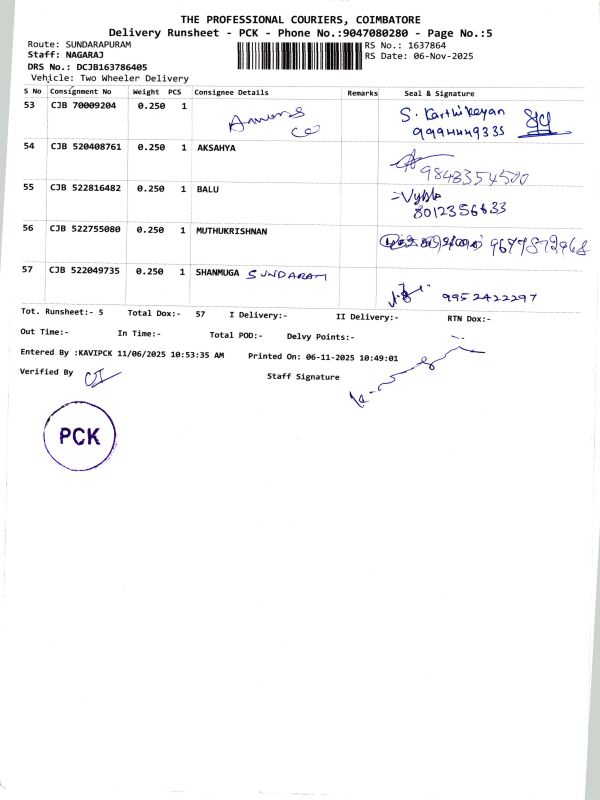 THE PROFESSIONAL COURIERS, COIMBATORE
Delivery Runsheet - PCK - Phone No.:9047080280 - Page No.:5
Route: SUNDARAPURAM RS No.: 1637864
Staff: NAGARAJ RS Date: 06-Nov-2025
DRS No.: DCJB163786405
Vehicle: Two Wheeler Delivery
S No Consignment No Weight PCS Consignee Details Remarks Seal & Signature
53 CJB 70009204 0.250 1 S. Karthikeyan
9994449335
54 CJB 520408761 0.250 1 AKSAHYA
9843354500
55 CJB 522816482 0.250 1 BALU
8012356633
56 CJB 522755080 0.250 1 MUTHUKRISHNAN
9677872968
57 CJB 522049735 0.250 1 SHANMUGA SUNDARAM
9952422297
Tot. Runsheet:- 5 Total Dox:- 57 I Delivery:- II Delivery:- RTN Dox:-
Out Time:- In Time:- Total POD:- Delvy Points:-
Entered By :KAVIPCK 11/06/2025 10:53:35 AM Printed On: 06-11-2025 10:49:01
Verified By Staff Signature
PCK